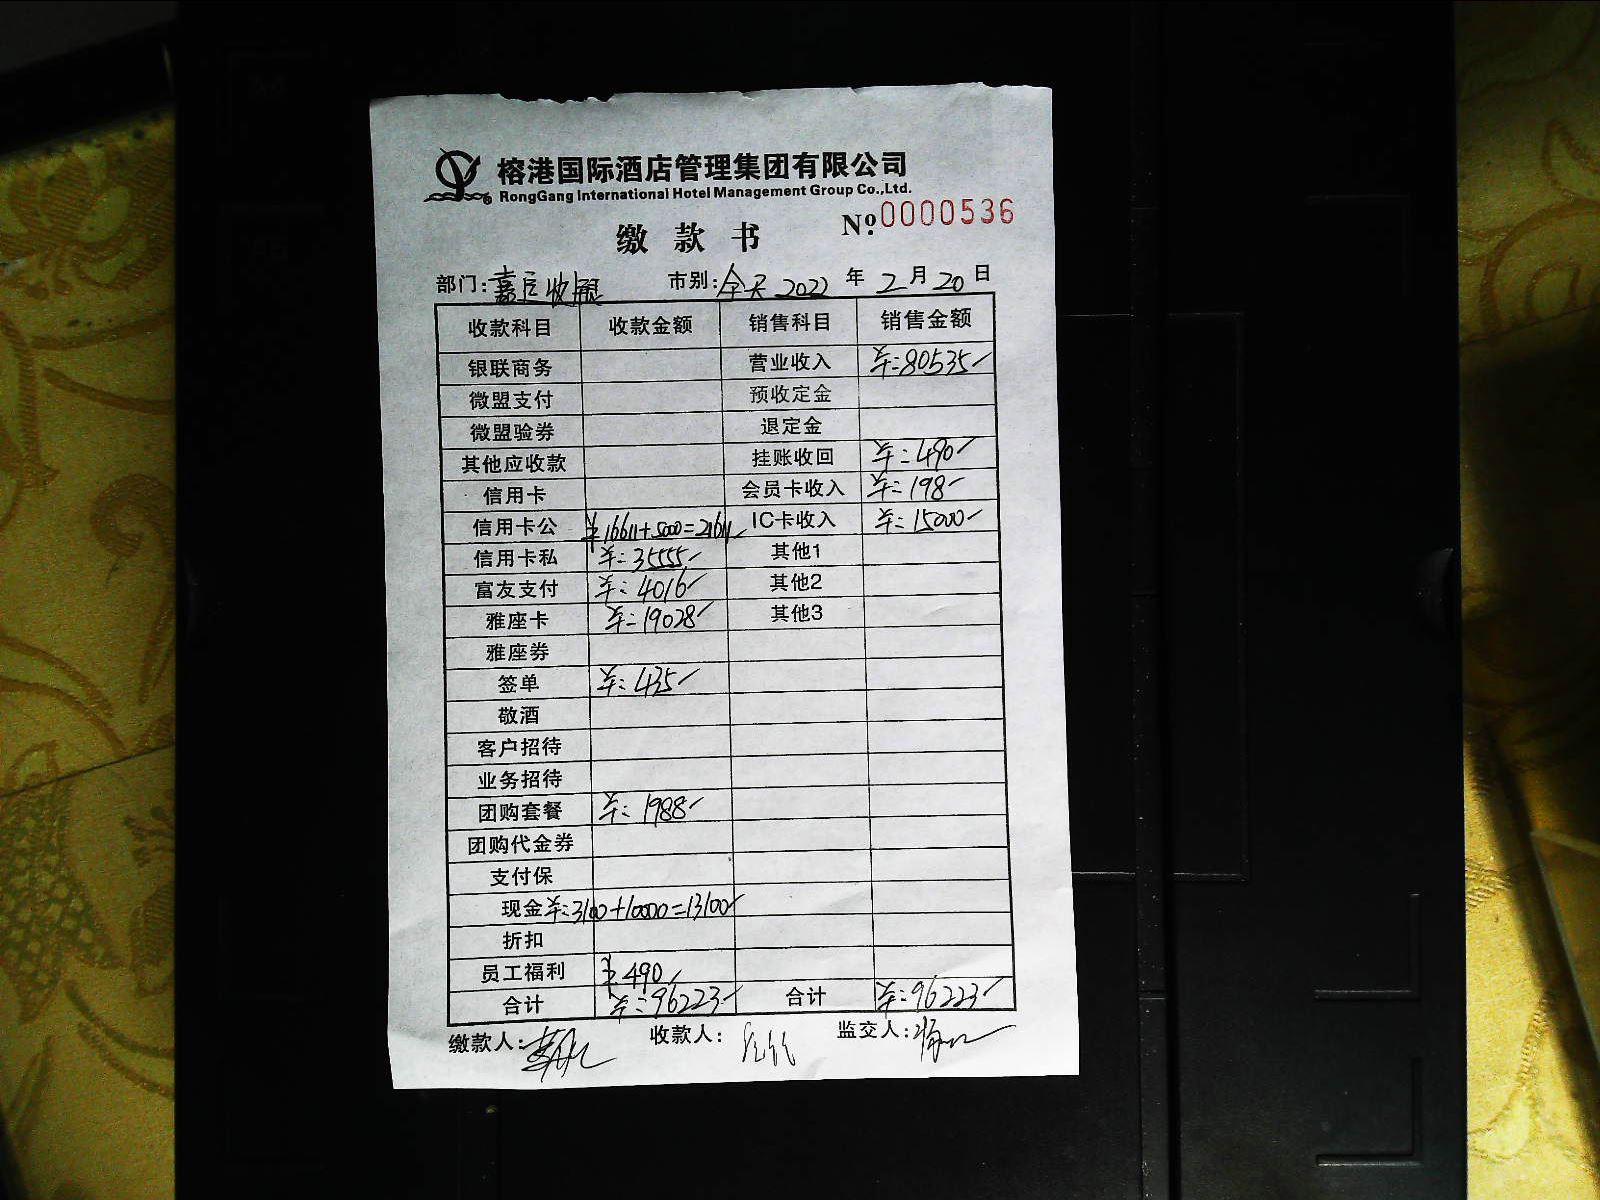 榕港国际酒店管理集团有限公司
RongGang International Hotel Management Group Co.,Ltd.
缴款书 №0000536
部门:嘉定收银 市别:全天 2022年2月20日
收款科目 收款金额 销售科目 销售金额
银联商务 营业收入 ¥:80535
微盟支付 预收定金
微盟验券 退定金
其他应收款 挂账收回 ¥:490
信用卡 会员卡收入 ¥:198
信用卡公 ¥16611+5000=21611 IC卡收入 ¥:15000
信用卡私 ¥:35555 其他1
富友支付 ¥:4016 其他2
雅座卡 ¥:19028 其他3
雅座券
签单 ¥:435
敬酒
客户招待
业务招待
团购套餐 ¥:1988
团购代金券
支付保
现金 ¥:3100+10000=13100
折扣
员工福利 ¥:490
合计 ¥:96223 合计 ¥:96223
缴款人: 收款人: 监交人: